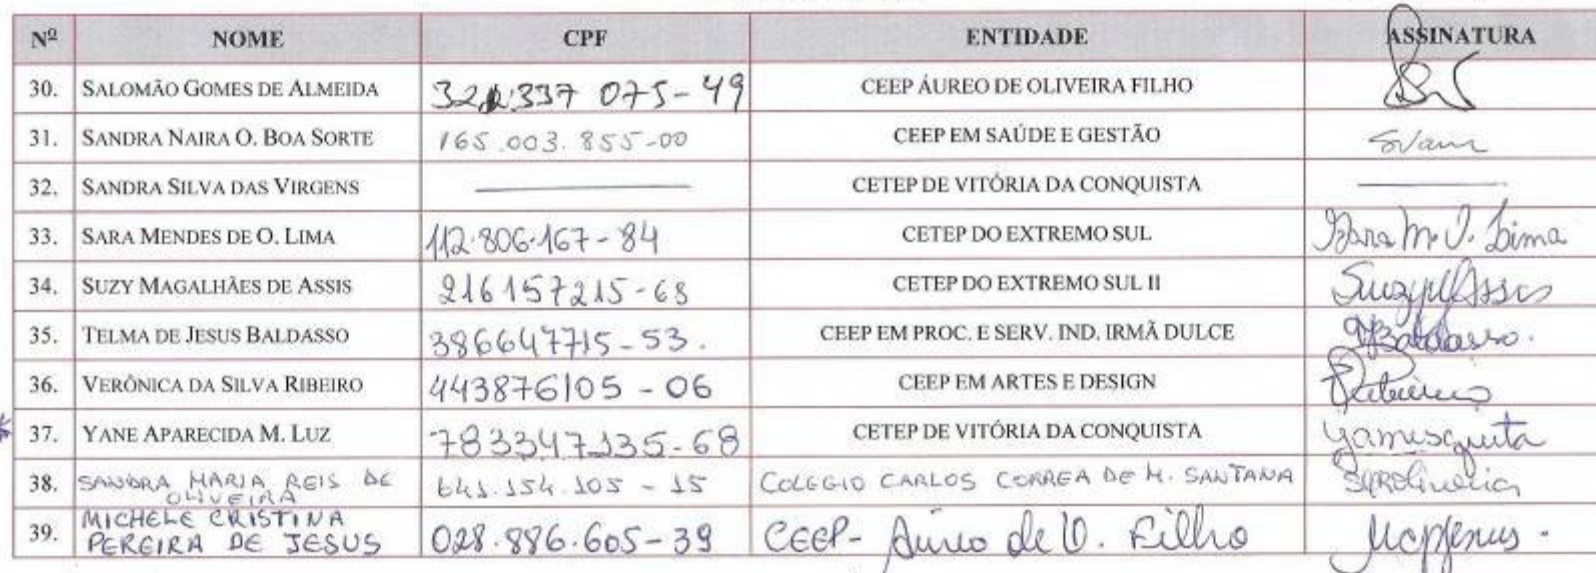 Nº NOME CPF ENTIDADE ASSINATURA
30. SALOMÃO GOMES DE ALMEIDA 321.337 075-49 CEEP ÁUREO DE OLIVEIRA FILHO
31. SANDRA NAIRA O. BOA SORTE 165.003.855-00 CEEP EM SAÚDE E GESTÃO
32. SANDRA SILVA DAS VIRGENS CETEP DE VITÓRIA DA CONQUISTA
33. SARA MENDES DE O. LIMA 112.806.167-84 CETEP DO EXTREMO SUL Sara M. O. Lima
34. SUZY MAGALHÃES DE ASSIS 216157215-68 CETEP DO EXTREMO SUL II
35. TELMA DE JESUS BALDASSO 386647715-53. CEEP EM PROC. E SERV. IND. IRMÃ DULCE
36. VERÔNICA DA SILVA RIBEIRO 443876105-06 CEEP EM ARTES E DESIGN
* 37. YANE APARECIDA M. LUZ 783347135-68 CETEP DE VITÓRIA DA CONQUISTA yamesquita
38. SANDRA MARIA REIS DE 641.154.105-15 COLEGIO CARLOS CORREA DE M. SANTANA
OLIVEIRA
39. MICHELE CRISTINA
PEREIRA DE JESUS 028.886.605-39 CEEP- Áureo de O. Filho